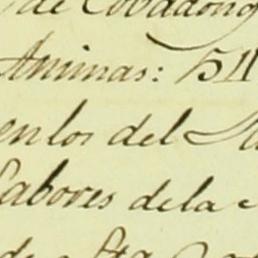 de Covadong
Animas: 511
en los del
Labores de la
de Sta